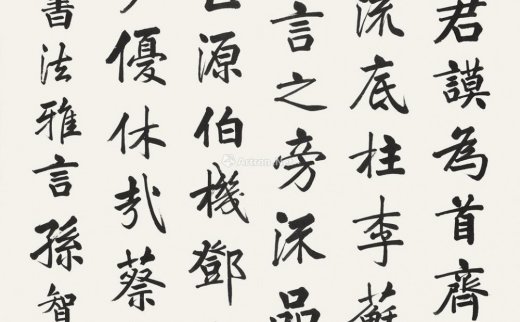 君謨為首齊
流底柱李蘇
言之旁深品
源伯機鄧
優休哉蔡
書法雅言孫智
Artron.Net